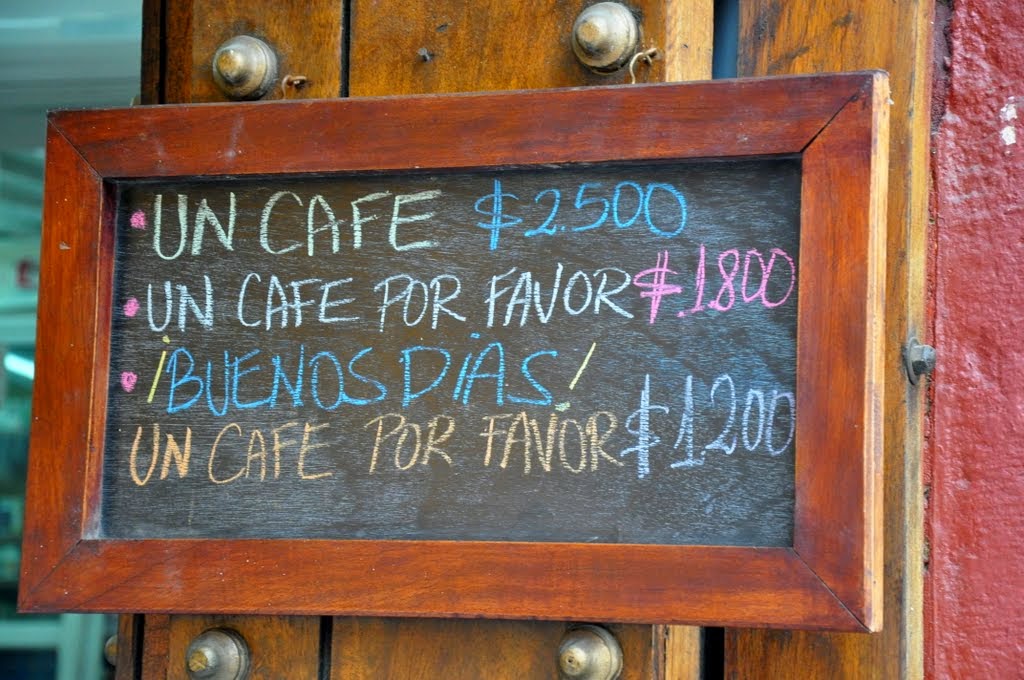 • UN CAFE $2.500
• UN CAFE POR FAVOR $1.800
• ¡BUENOS DÍAS!
UN CAFE POR FAVOR $1.200